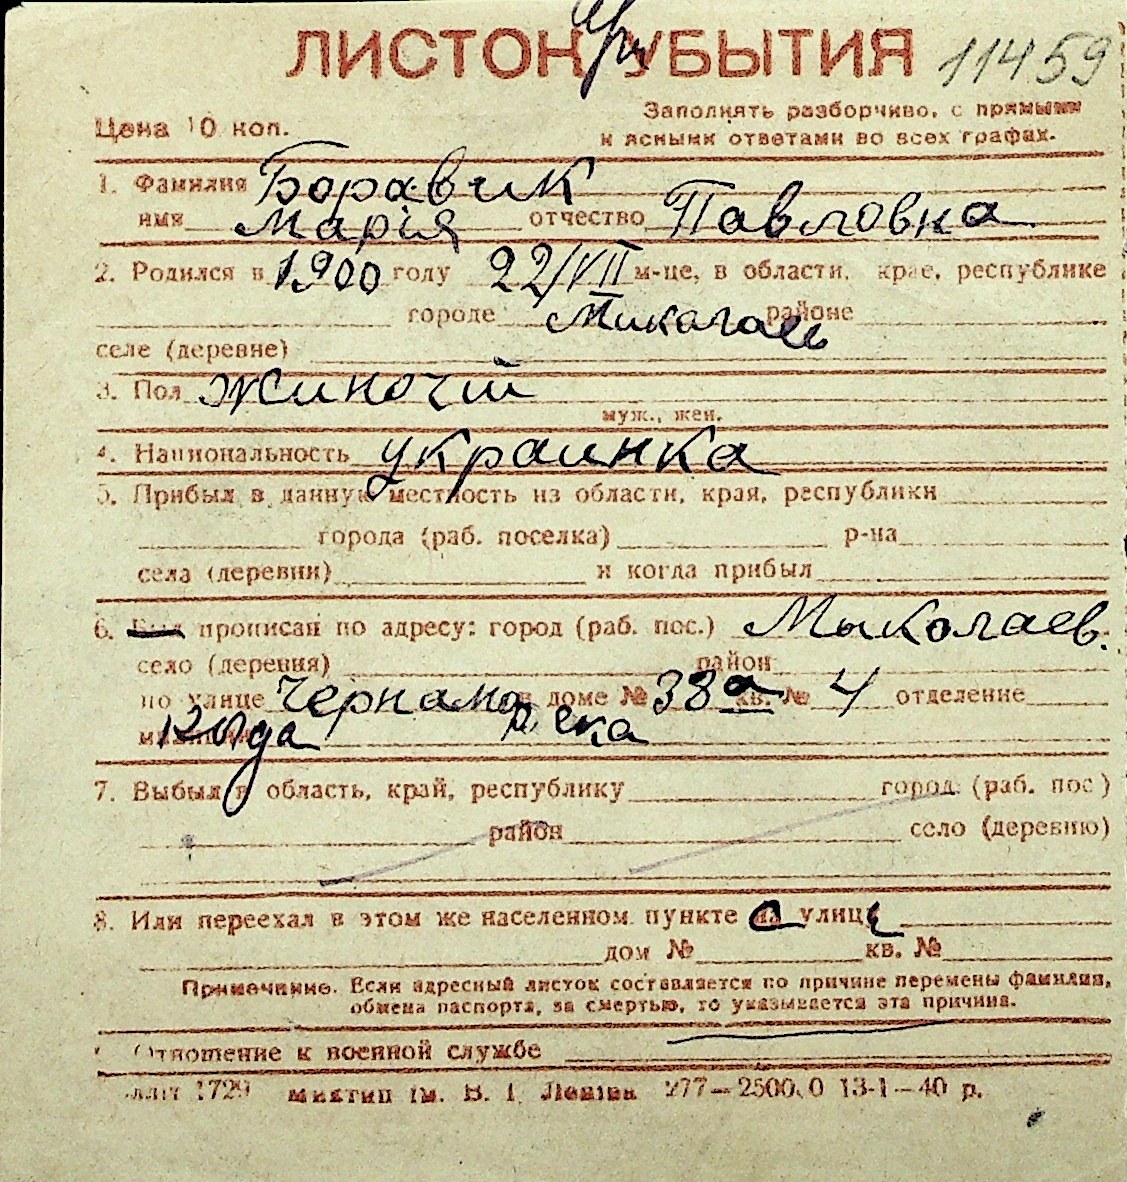 ЛИСТОК при УБЫТИЯ 11459
Цена 10 коп.
Заполнять разборчиво, с прямыми
и ясными ответами во всех графах.
1. Фамилия Боравик
имя Марія отчество Павловна
2. Родился в 1900 году 22/VII м-це, в области, крае, республике
городе Миколаевь районе
селе (деревне)
3. Пол жиночій
муж., жен.
4. Национальность украинка
5. Прибыл в данную местность из области, края, республики
города (раб. поселка) р-на
села (деревни) и когда прибыл
6. Был прописан по адресу: город (раб. пос.) Мыколаев.
село (деревня) район
по улице Чернамо в доме № 38а кв. № 4 отделение
рска
7. Выбыл в область, край, республику город (раб. пос)
район село (деревню)
8. Или переехал в этом же населенном пункте с улице
дом № кв. №
Примечание. Если адресный листок составляется по причине перемены фамилии,
обмена паспорта, за смертью, то указывается эта причина.
Отношение к военной службе
1729 миктип ім. В. І. Леніна 277—2500.0 13-1—40 р.